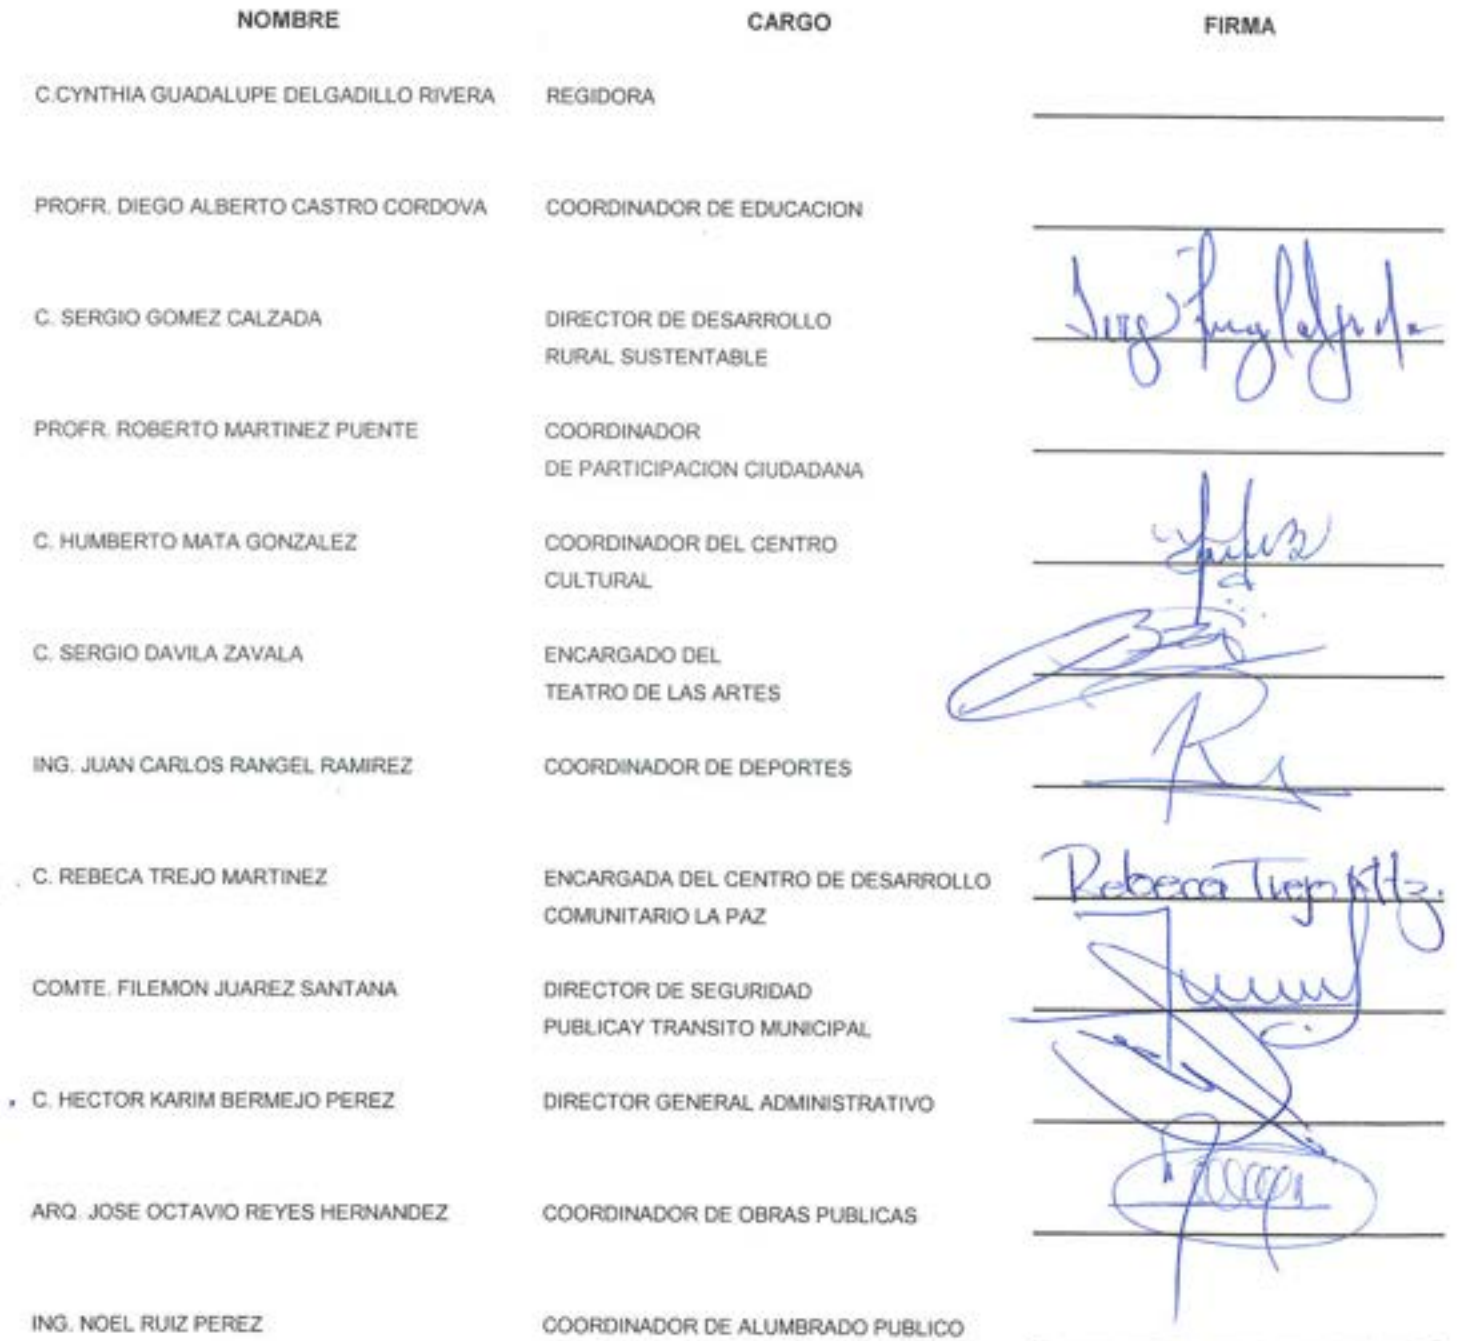 NOMBRE CARGO FIRMA
C.CYNTHIA GUADALUPE DELGADILLO RIVERA REGIDORA
PROFR. DIEGO ALBERTO CASTRO CORDOVA COORDINADOR DE EDUCACION
C. SERGIO GOMEZ CALZADA DIRECTOR DE DESARROLLO
RURAL SUSTENTABLE
PROFR. ROBERTO MARTINEZ PUENTE COORDINADOR
DE PARTICIPACION CIUDADANA
C. HUMBERTO MATA GONZALEZ COORDINADOR DEL CENTRO
CULTURAL
C. SERGIO DAVILA ZAVALA ENCARGADO DEL
TEATRO DE LAS ARTES
ING. JUAN CARLOS RANGEL RAMIREZ COORDINADOR DE DEPORTES
C. REBECA TREJO MARTINEZ ENCARGADA DEL CENTRO DE DESARROLLO Rebeca Trejo Mtz.
COMUNITARIO LA PAZ
COMTE. FILEMON JUAREZ SANTANA DIRECTOR DE SEGURIDAD
PUBLICAY TRANSITO MUNICIPAL
C. HECTOR KARIM BERMEJO PEREZ DIRECTOR GENERAL ADMINISTRATIVO
ARQ. JOSE OCTAVIO REYES HERNANDEZ COORDINADOR DE OBRAS PUBLICAS
ING. NOEL RUIZ PEREZ COORDINADOR DE ALUMBRADO PUBLICO